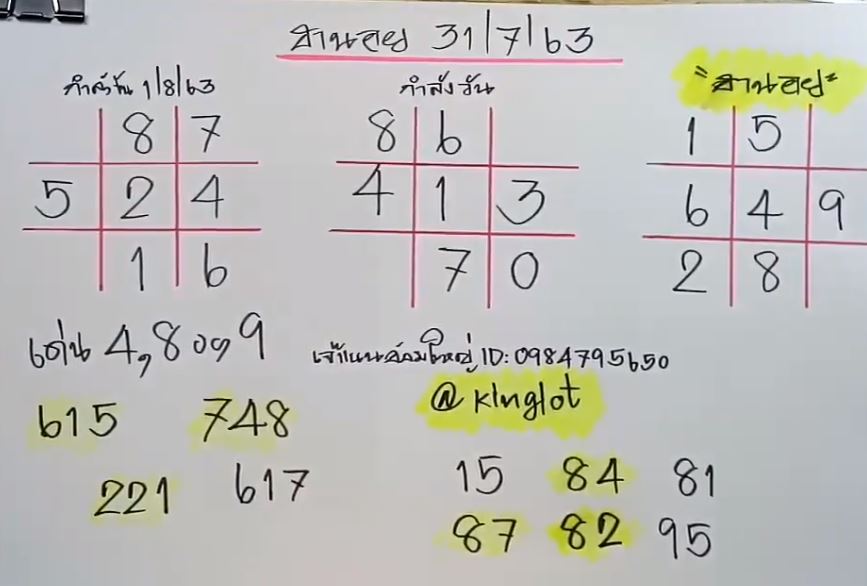 ฮานอย 31/7/63
กำลังวัน 1/8/63
กำลังวัน
"ฮานอย"
8 7
5 2 4
1 6
8 6
4 1 3
7 0
1 5
6 4 9
2 8
เด่น 4,8 ๐๑ 9
ID: 0984795650
@ kinglot
615 748
221 617
15 84 81
87 82 95